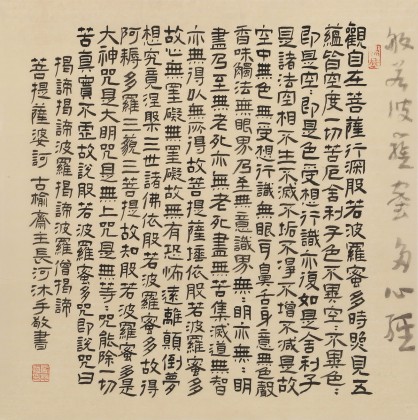 般若波羅蜜多心經
觀自在菩薩行深般若波羅蜜多時照見五
蘊皆空度一切苦厄舍利子色不異空:不異色:
即是空:即是色受想行識亦復如是舍利子
是諸法空相不生不滅不垢不淨不增不減是故
空中無色無受想行識無眼耳鼻舌身意無色聲
香味觸法無眼界乃至無意識界無:明亦無:明
盡乃至無老死亦無老死盡無苦集滅道無智
亦無得以無所得故菩提薩埵依般若波羅蜜多
故心無罣礙無罣礙故無有恐怖遠離顛倒夢
想究竟涅槃三世諸佛依般若波羅蜜多故得
阿耨多羅三藐三菩提故知般若波羅蜜多是
大神咒是大明咒是無上咒是無等:咒能除一切
苦真實不虛故說般若波羅蜜多咒即說咒曰
揭諦揭諦波羅揭諦波羅僧揭諦
菩提薩婆訶 古榆齋主長河沐手敬書